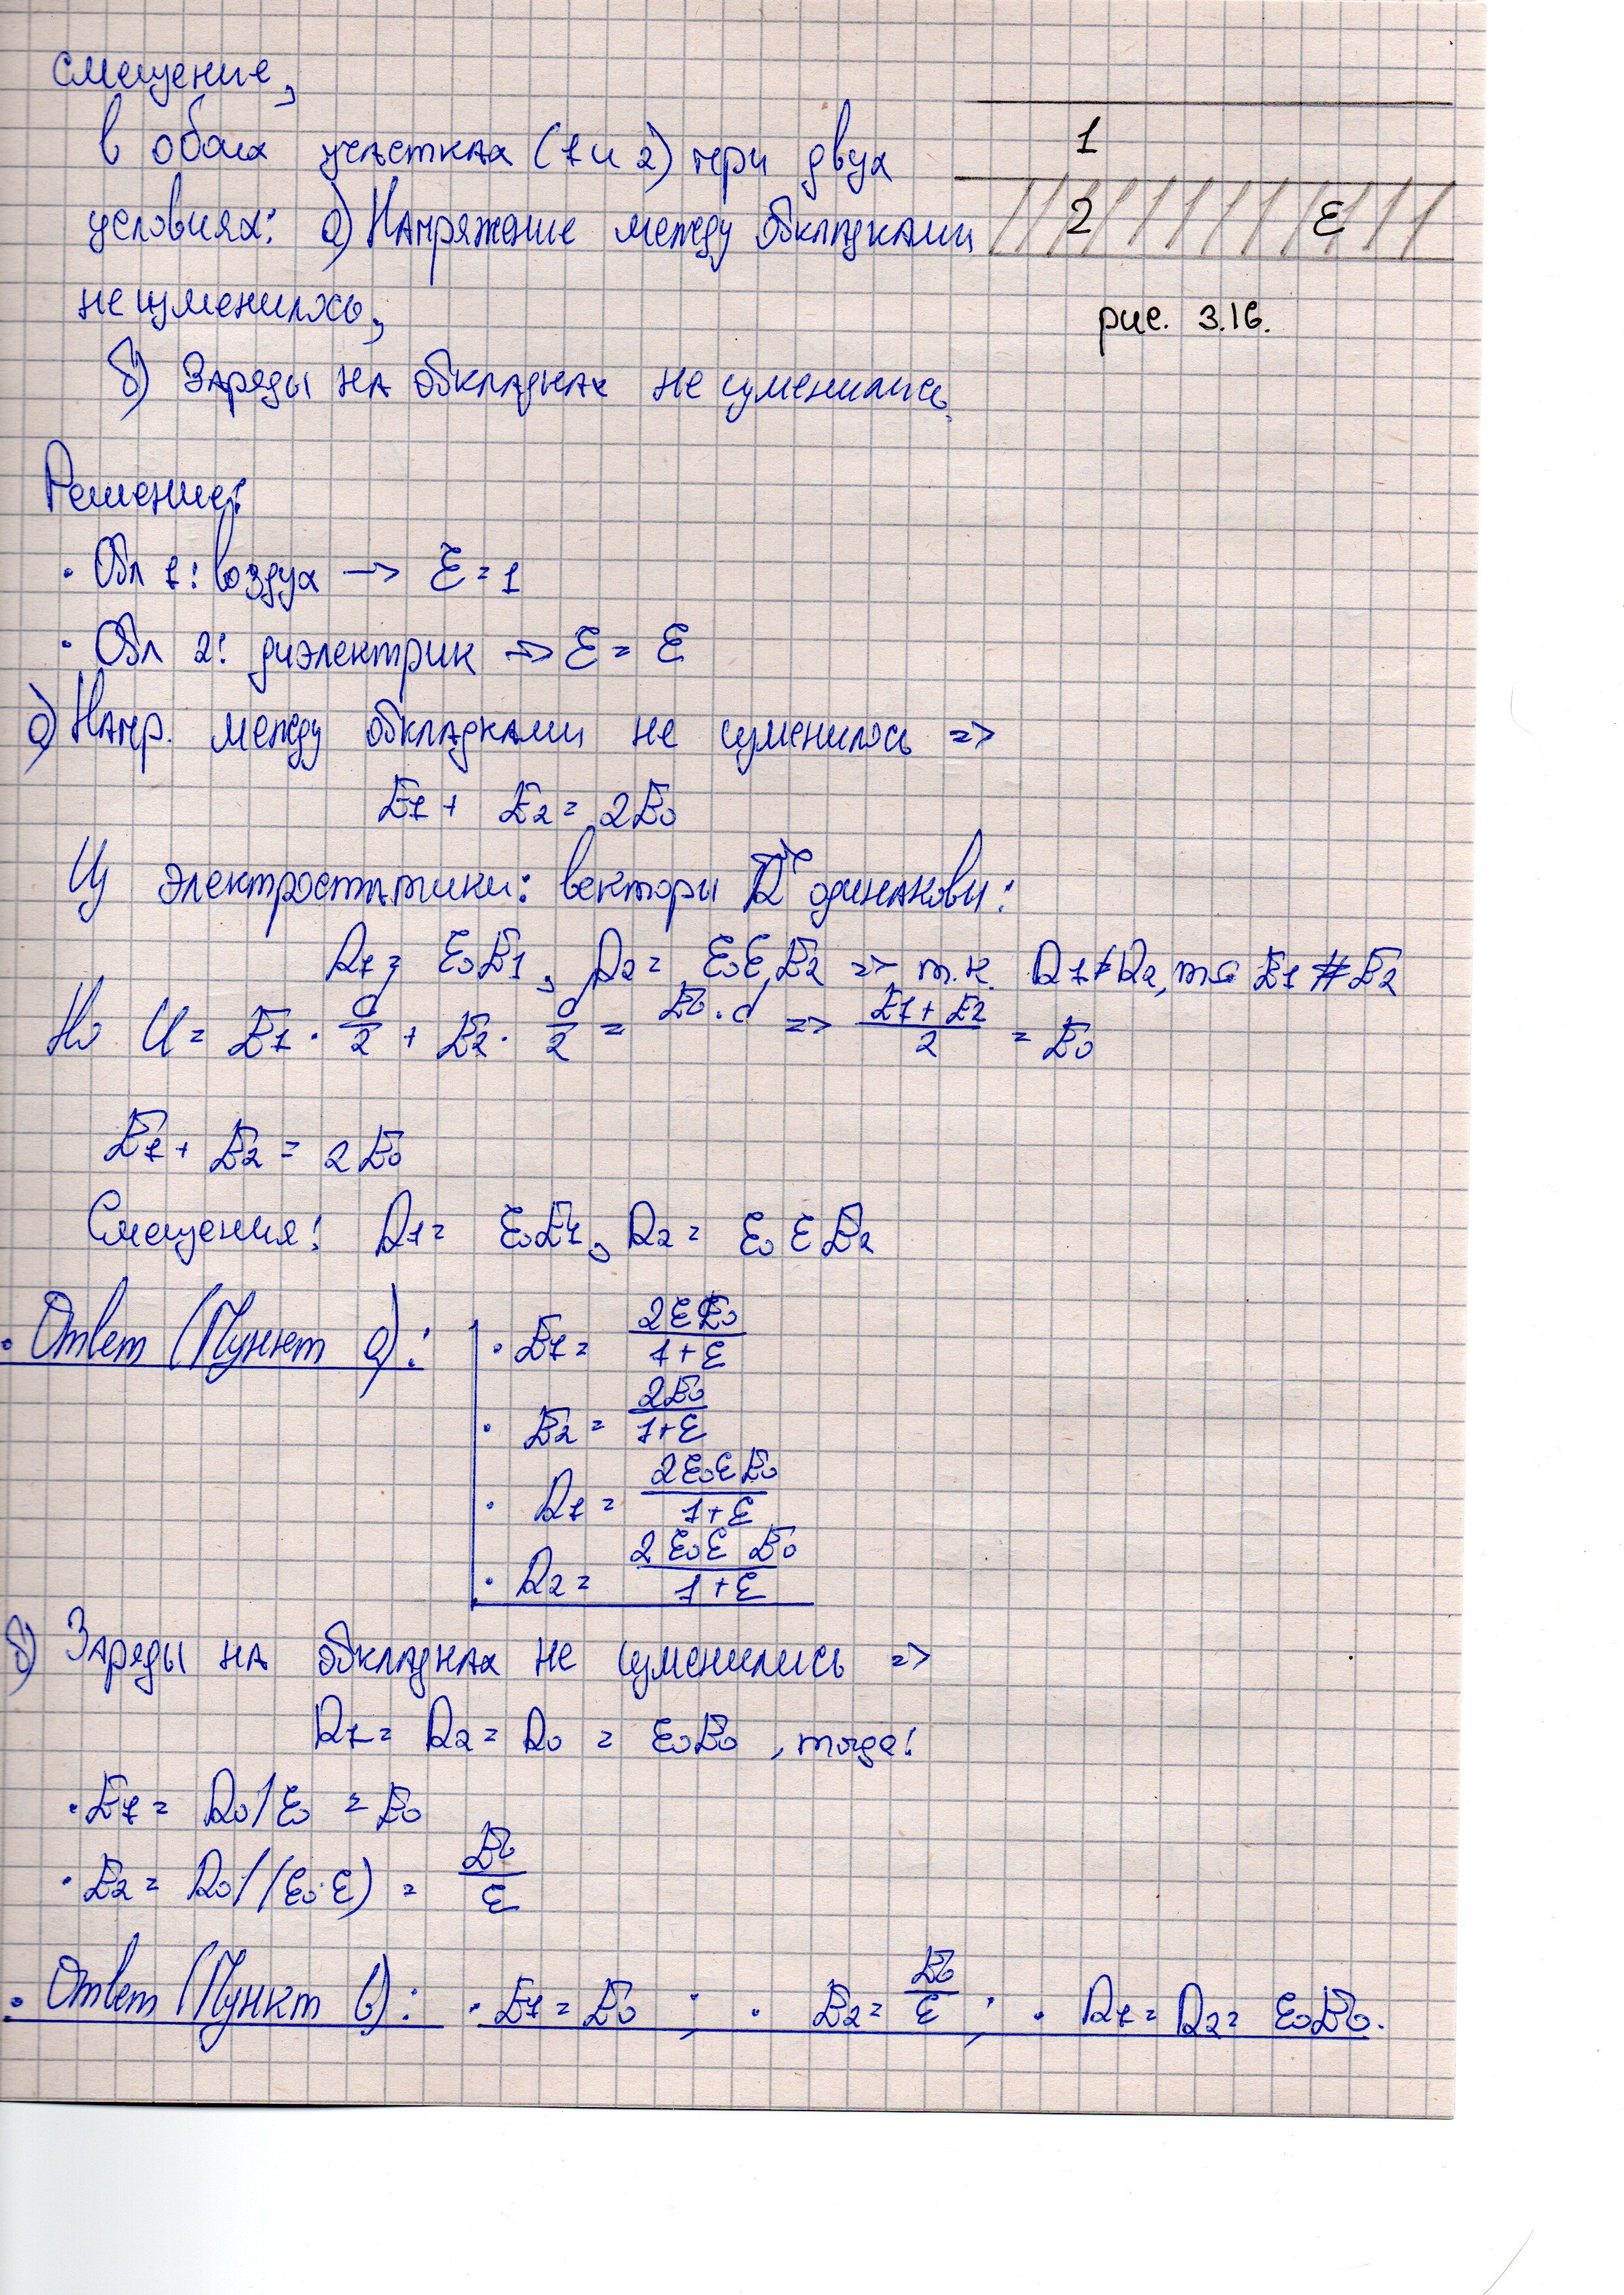 смещение,
в обоих участках (1 и 2) при двух
1
условиях: а) Напряжение между обкладками
2 ε
не изменилось;
рис. 3.16.
б) Заряды на обкладках не изменились.
Решение:
• Обл 1: воздух → ε = 1
• Обл 2: диэлектрик => ε = ε
а) Напр. между обкладками не изменилось =>
E1 + E2 = 2E0
Из электростатики: векторы D одинаковы:
D1 = ε0E1, D2 = ε0εE2 => т.к. D1≠D2, то E1 ≠ E2
Но U = E1 · d/2 + E2 · d/2 = E0 · d => (E1 + E2)/2 = E0
E1 + E2 = 2E0
Смещения: D1 = ε0E1, D2 = ε0 ε E2
• Ответ (Пункт а):
• E1 = 2εE0/(1+ε)
• E2 = 2E0/(1+ε)
• D1 = 2ε0εE0/(1+ε)
• D2 = 2ε0ε E0/(1+ε)
б) Заряды на обкладках не изменились =>
D1 = D2 = D0 = ε0E0, тогда:
• E1 = D0/ε0 = E0
• E2 = D0/(ε0·ε) = E0/ε
• Ответ (Пункт б): • E1 = E0 ; • E2 = E0/ε ; • D1 = D2 = ε0E0.